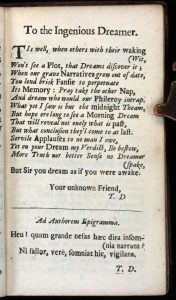 To the Ingenious Dreamer.
'TIs well, when others with their waking
(Wit,
Won't see a Plot, that Dreams discover it;
When our grave Narratives grow out of date,
You lend brisk Fansie to perpetuate
Its Memory: Pray take the other Nap,
And dream who would our Phileroy intrap.
What yet I saw is but the midnight Theam,
But hope ere long to see a Morning Dream
That will reveal not onely what is past,
But what conclusion they'l come to at last.
Servile Applauses to no man I owe,
Yet on your Dream my Verdict, Ile bestow,
More Truth nor better Sense no Dreamer
(spake,
But Sir you dream as if you were awake.
Your unknown Friend,
T. D
Ad Authorem Epigramma.
Heu! quam grande nefas hæc dira insom-
(nia narrant?
Ni fallor, vere, somniat hic, vigilans.
T. D.